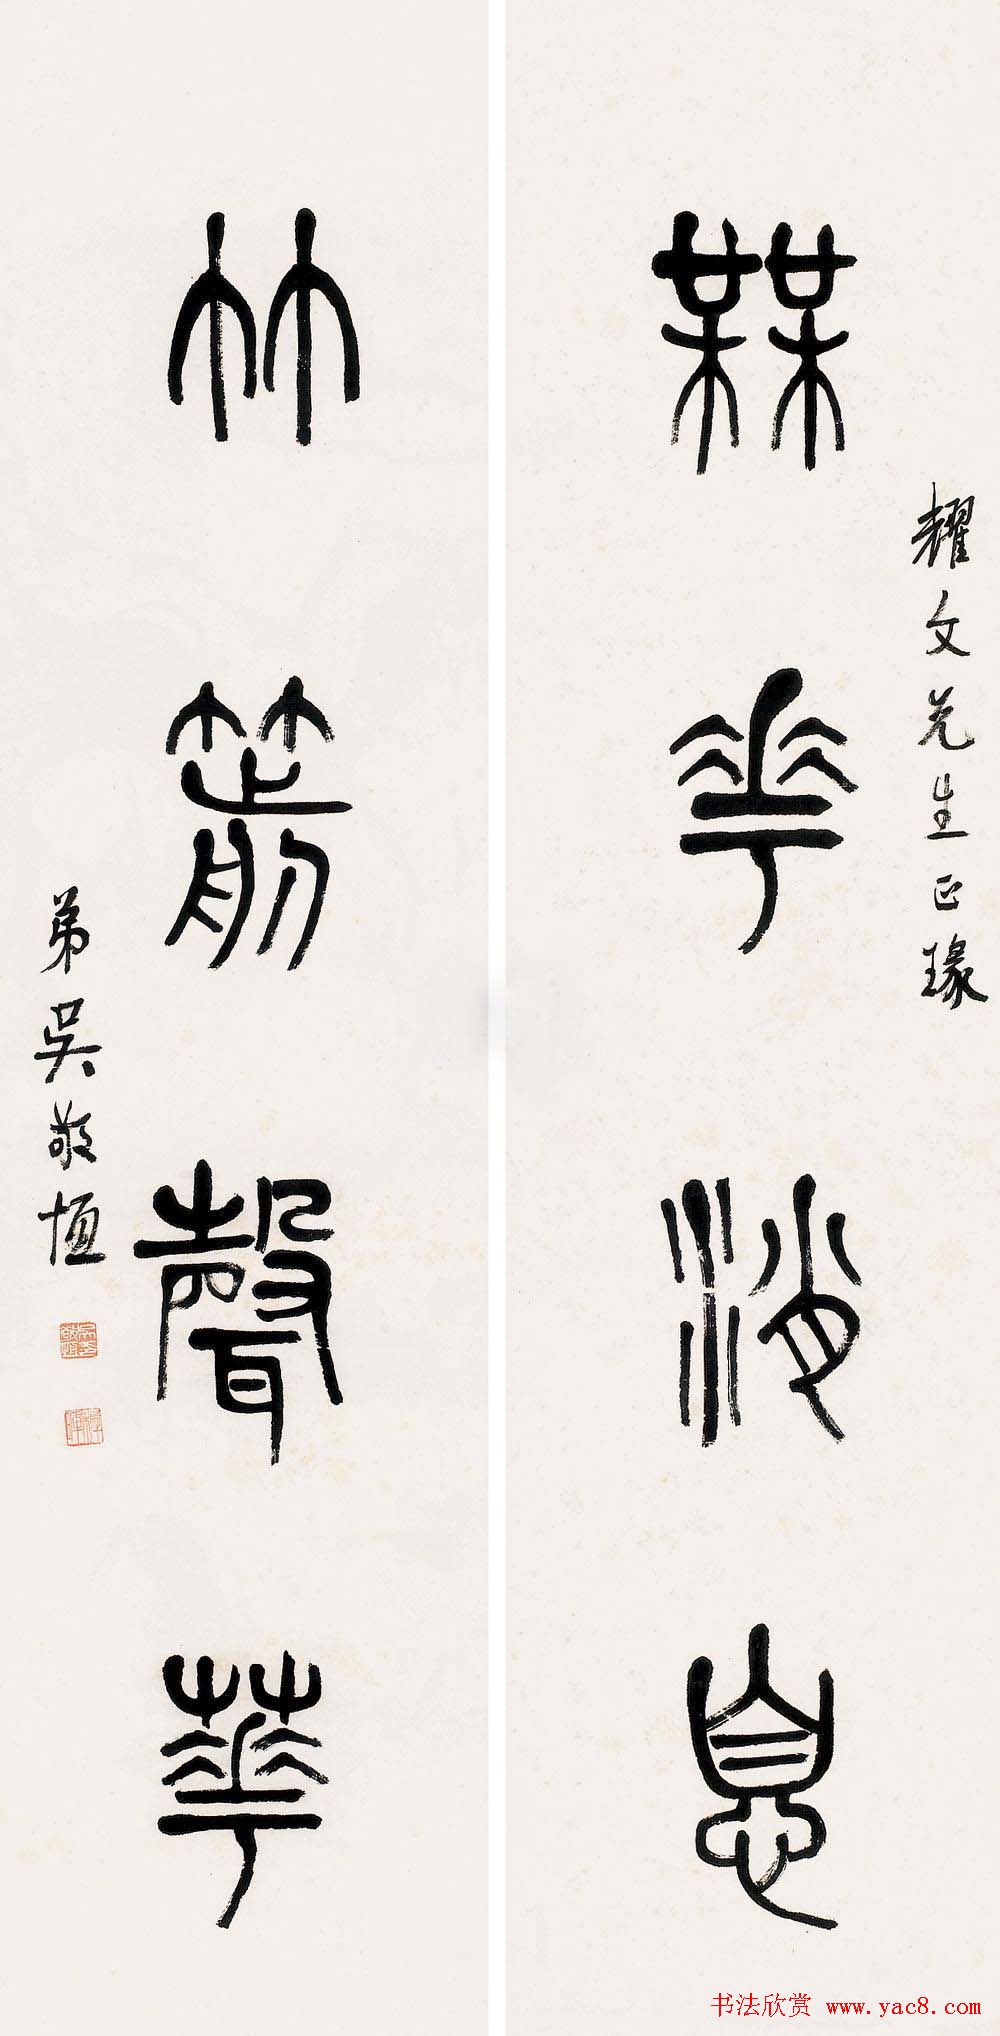 耀文先生正瑑
槑花消息
竹箭聲華
弟吳敬恒
书法欣赏 www.yac8.com